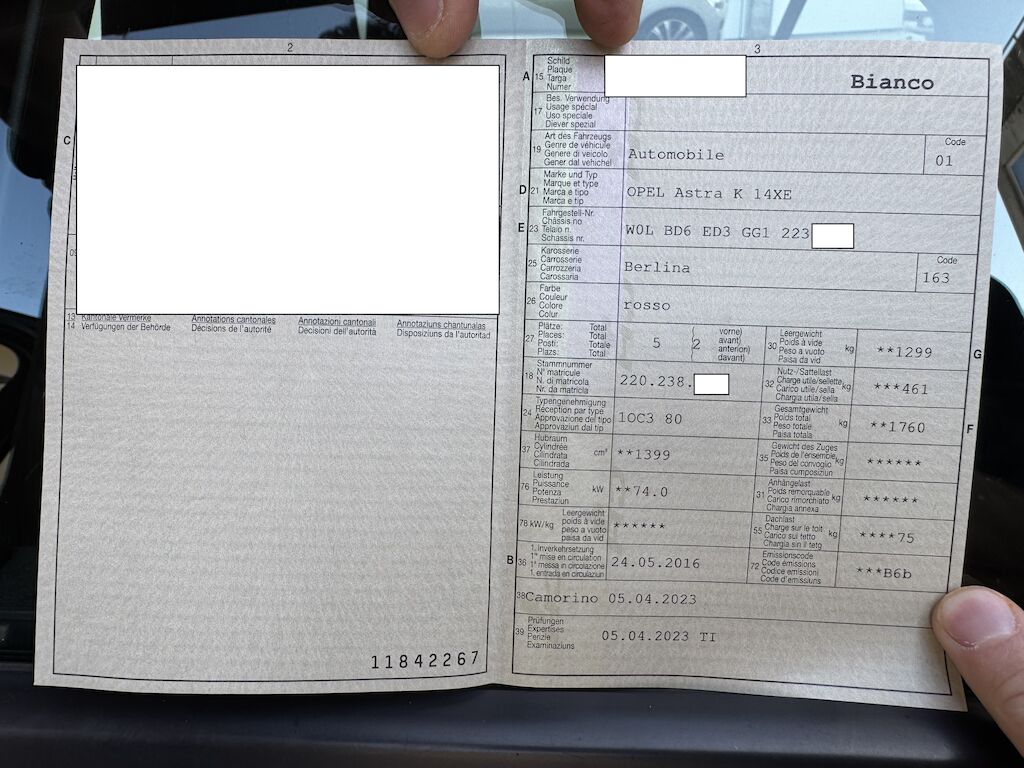 2
C
13 Kantonale Vermerke Annotations cantonales Annotazioni cantonali Annotaziuns chantunalas
14 Verfügungen der Behörde Décisions de l'autorité Decisioni dell'autorità Disposiziuns da l'autoritad
11842267
3
A 15 Schild
Plaque
Targa
Numer
Bianco
17 Bes. Verwendung
Usage spécial
Uso speciale
Diever spezial
19 Art des Fahrzeugs
Genre de véhicule
Genere di veicolo
Gener dal vehichel
Automobile
Code
01
D 21 Marke und Typ
Marque et type
Marca e tipo
Marca e tip
OPEL Astra K 14XE
E 23 Fahrgestell-Nr.
Châssis no
Telaio n.
Schassis nr.
W0L BD6 ED3 GG1 223
25 Karosserie
Carrosserie
Carrozzeria
Carossaria
Berlina
Code
163
26 Farbe
Couleur
Colore
Colur
rosso
27 Plätze: Total
Places: Total
Posti: Totale
Plazs: Total
5 (2 vorne)
avant)
anteriori)
davant)
30 Leergewicht
Poids à vide
Peso a vuoto
Paisa da vid
kg
**1299
G
18 Stammnummer
N° matricule
N. di matricola
Nr. da matricla
220.238.
32 Nutz-/Sattellast
Charge utile/sellette
Carico utile/sella
Chargia utila/sella
kg
***461
24 Typengenehmigung
Réception par type
Approvazione del tipo
Approvaziun dal tip
1OC3 80
33 Gesamtgewicht
Poids total
Peso totale
Paisa totala
kg
**1760
F
37 Hubraum
Cylindrée
Cilindrata
Cilindrada
cm³
**1399
35 Gewicht des Zuges
Poids de l'ensemble
Peso del convoglio
Paisa cumposiziun
kg
******
76 Leistung
Puissance
Potenza
Prestaziun
kW
**74.0
31 Anhängelast
Poids remorquable
Carico rimorchiato
Chargia annexa
kg
******
78 kW/kg Leergewicht
poids à vide
peso a vuoto
paisa da vid
******
55 Dachlast
Charge sur le toit
Carico sul tetto
Chargia sin il tetg
kg
****75
B 36 1. Inverkehrsetzung
1re mise en circulation
1a messa in circolazione
1. entrada en circulaziun
24.05.2016
72 Emissionscode
Code émissions
Codice emissioni
Code d'emissiuns
***B6b
38 Camorino 05.04.2023
39 Prüfungen
Expertises
Perizie
Examinaziuns
05.04.2023 TI